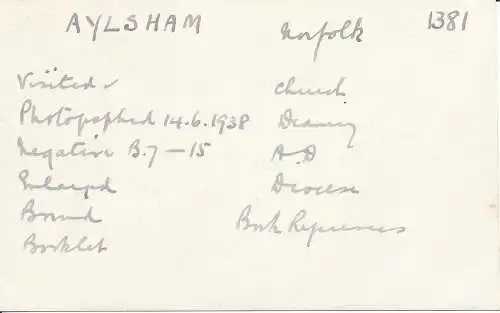 AYLSHAM Norfolk 1381
Visited ✓ Church
Photographed 14.6.1938 Deanery
Negative B.7-15 A.D
Enlarged Diocese
Bound Book References
Booklet